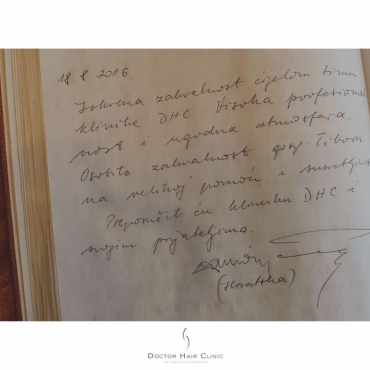 18. 8. 2016.
Iskrena zahvalnost cijelom timu
klinike DHC. Visoka profesional
nost i ugodna atmosfera.
Osobita zahvalnost gosp. Tiboru
na velikoj pomoći i susretljivo
Preporučit ću kliniku DHC i
svojim prijateljima.
(Hrvatska)
DOCTOR HAIR CLINIC